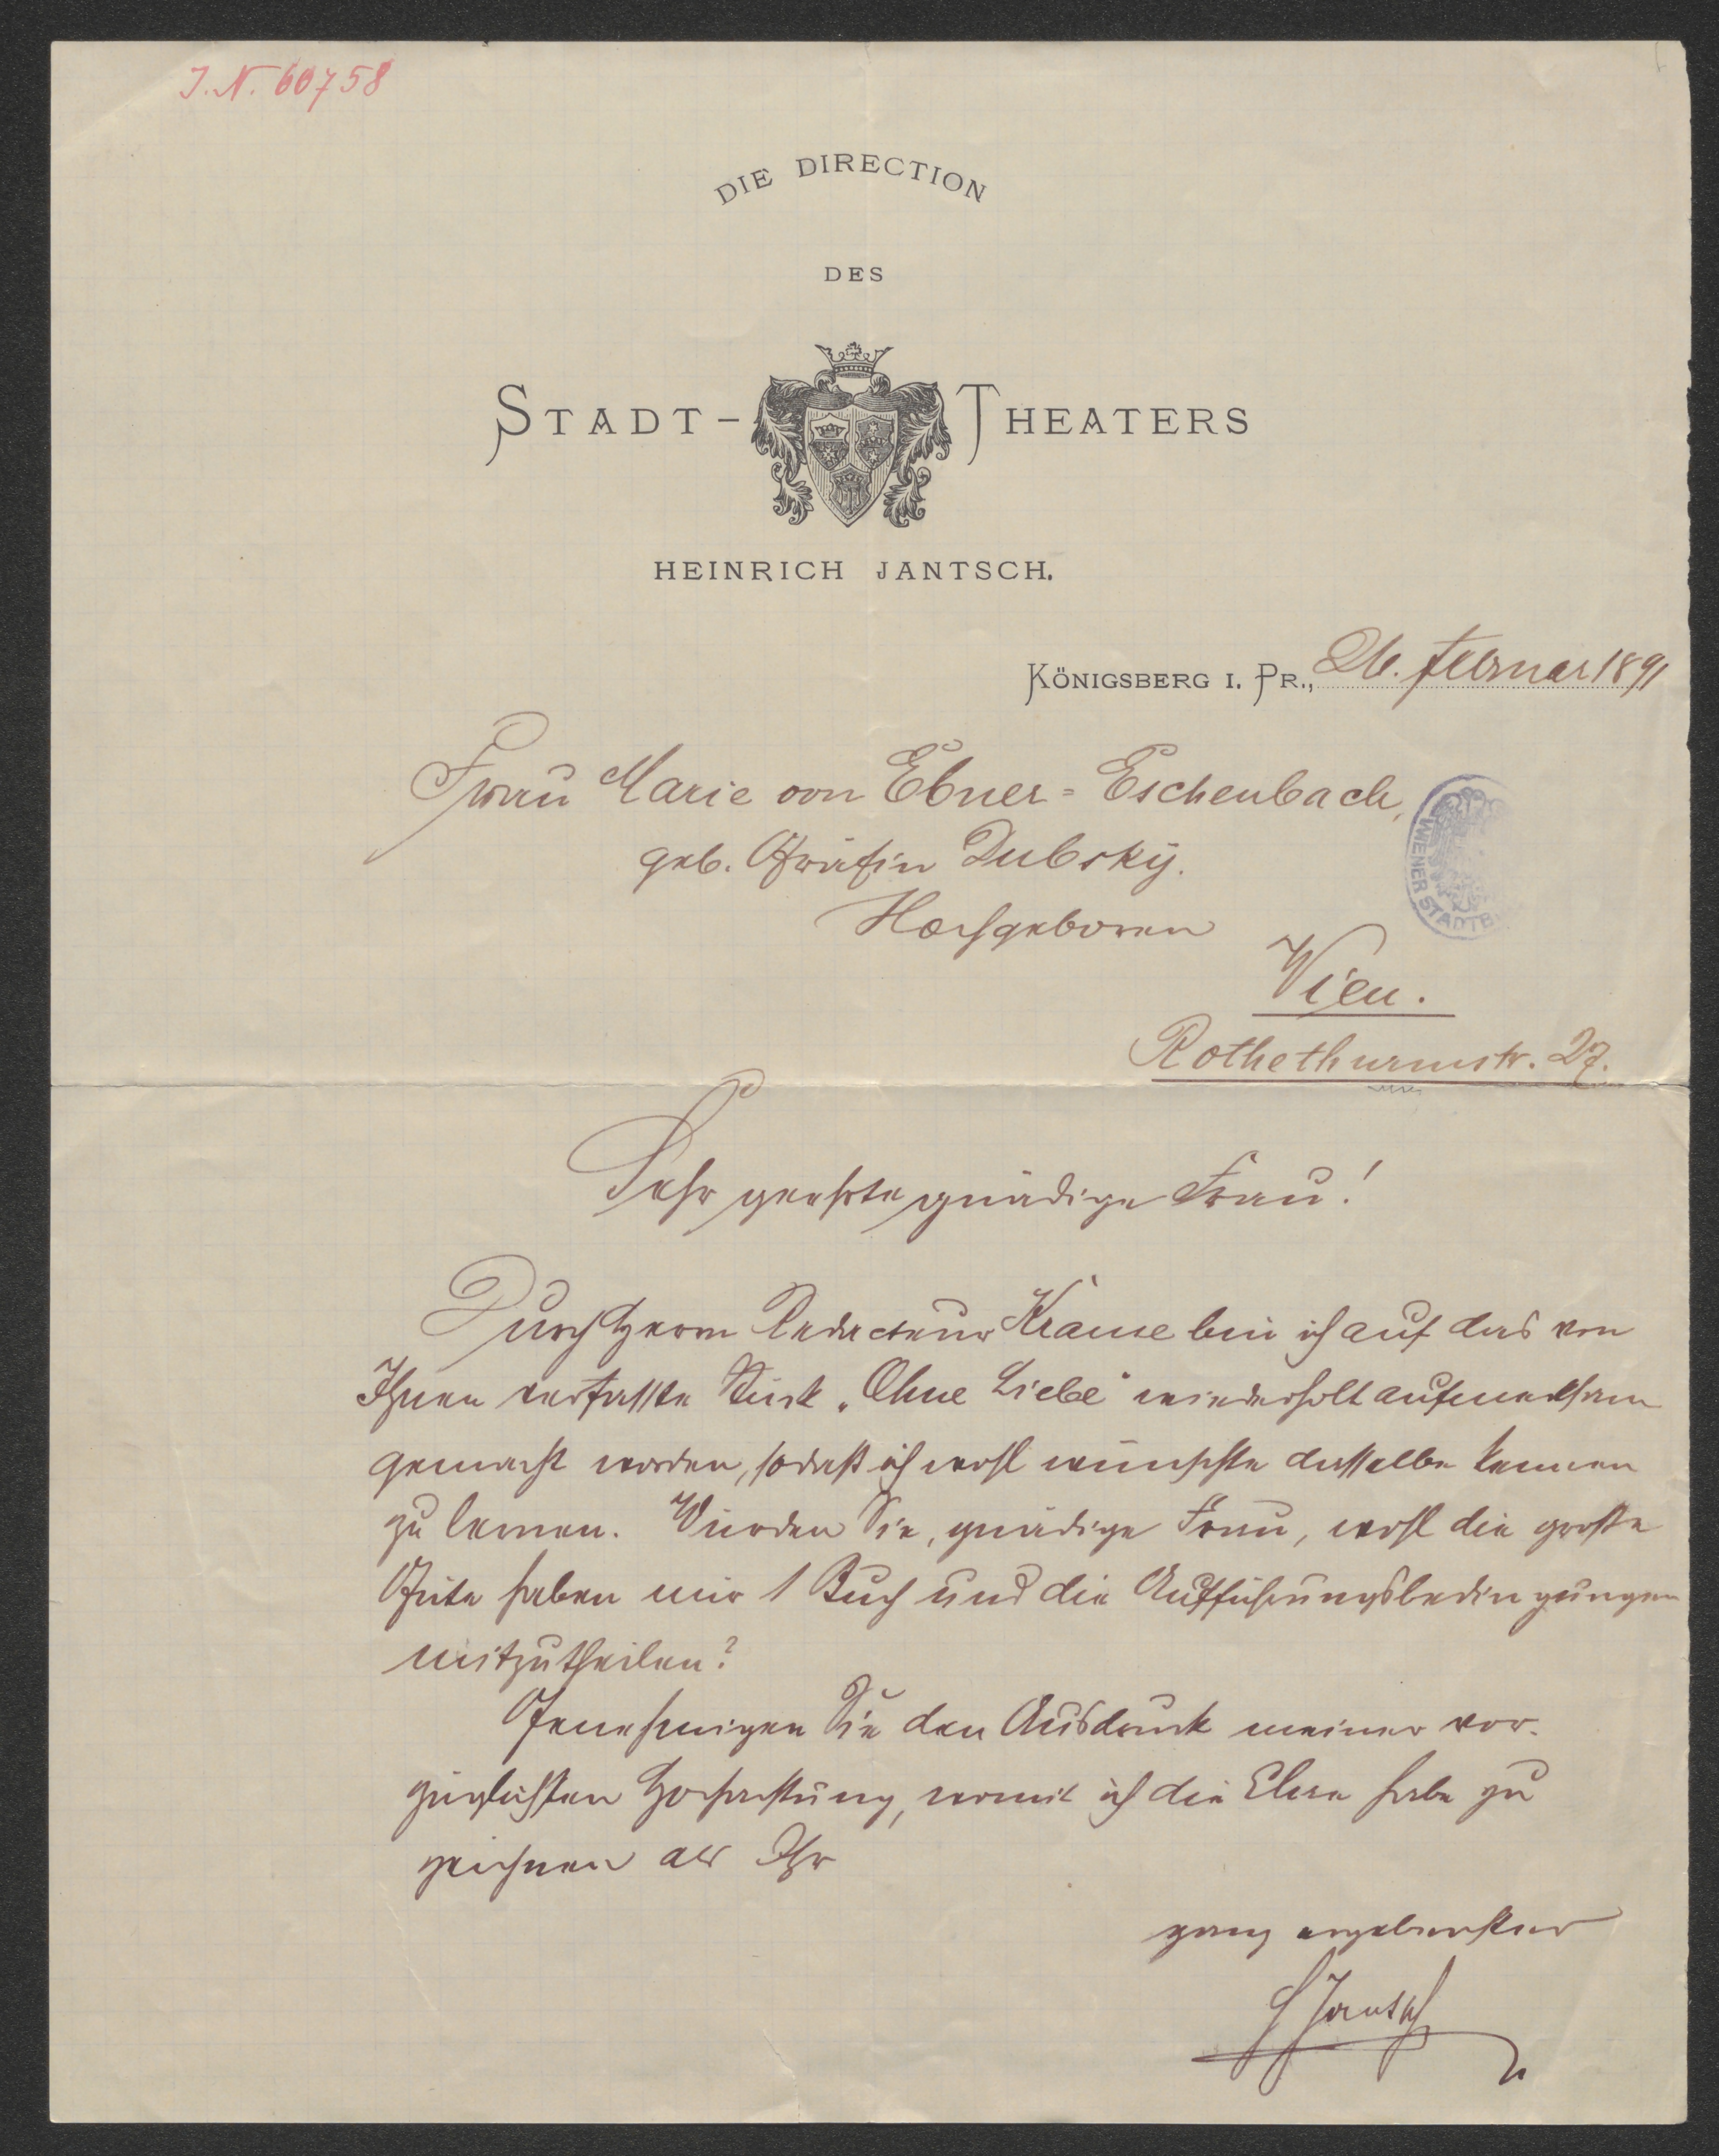 J. N. 60758
DIE DIRECTION
DES
STADT-THEATERS
HEINRICH JANTSCH.
KÖNIGSBERG I. PR., 26. Februar 1891
Frau Marie von Ebner=Eschenbach,
geb. Gräfin Dubsky.
Hochgeboren
WIENER STADTB
Wien.
Rothethurmstr. 27.
Sehr geehrte gnädige Frau!
Durch Herrn Redacteur Krause bin ich auf das von
Ihnen verfasste Stück „Ohne Liebe" wiederholt aufmerksam
gemacht worden, sodaß ich wohl wünschte dasselbe kennen
zu lernen. Würden Sie, gnädige Frau, wohl die große
Güte haben mir 1 Buch und die Aufführungsbedingungen
mitzutheilen?
Genehmigen Sie den Ausdruck meiner vor-
züglichsten Hochachtung, womit ich die Ehre habe zu
zeichnen als Ihr
ganz ergebenster
HJantsch